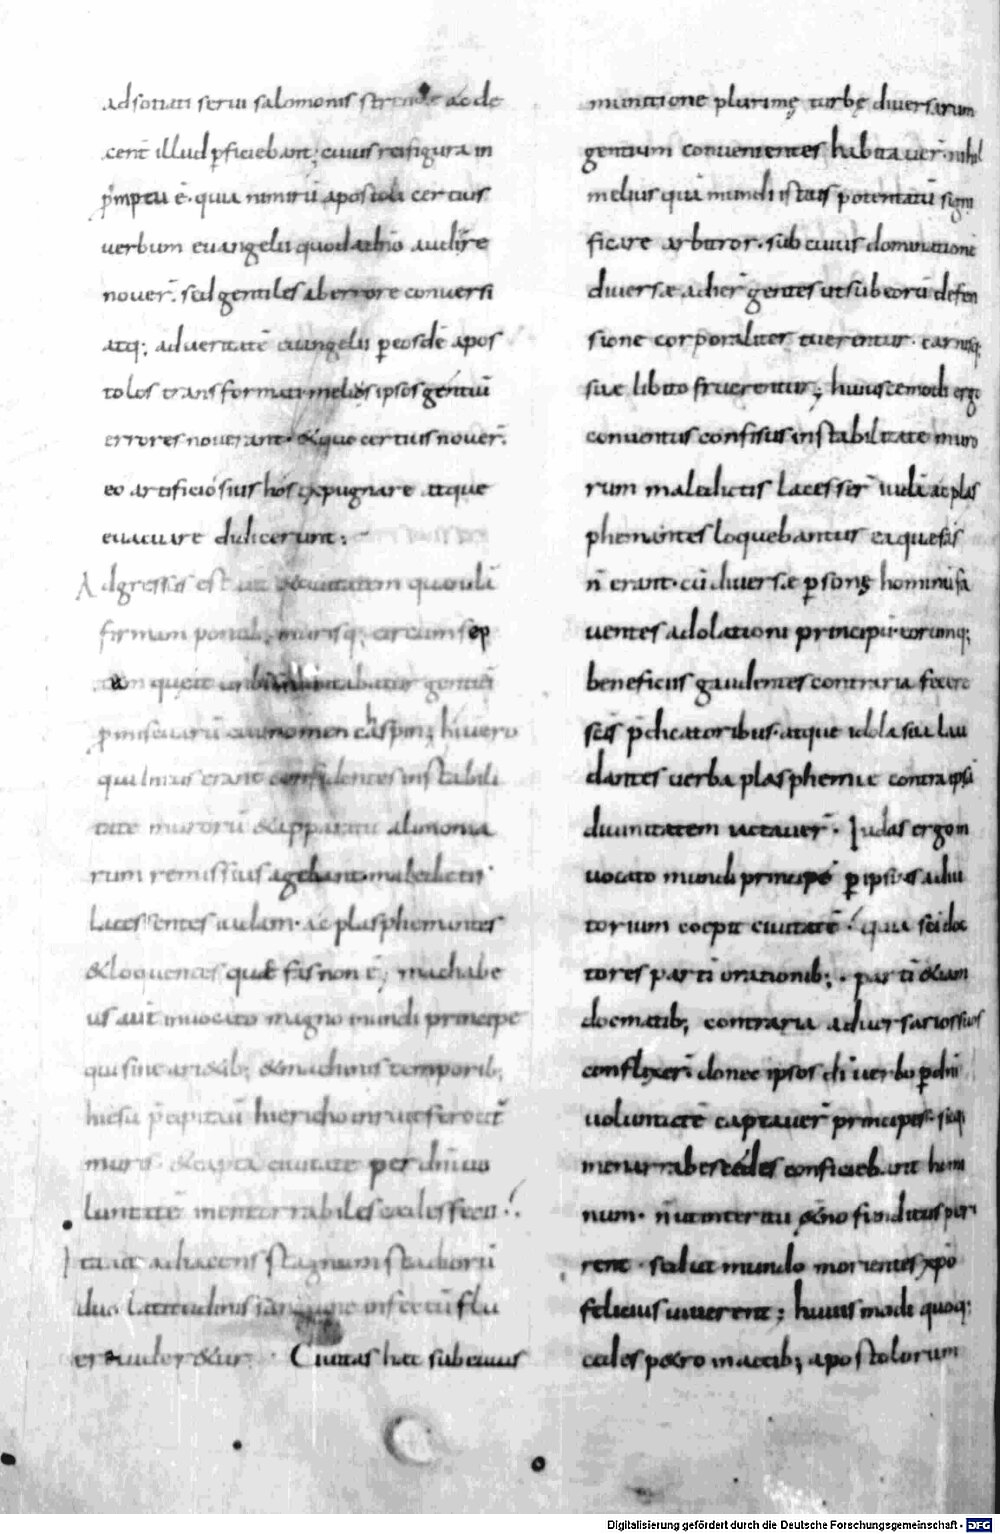 adsociati serui salomonis strenue ac de
cent illud pficiebant; cuius rei figura in
prīmptu ē· quia nimirū apostoli certius
verbum euangelii audire
nouer̄· sed gentiles ab errore conuersi
atq; ad ueritatē euangelii p eosdē apos
tolos transformati melius ipsos gentiū
errores nouerant· &quo certius nouer̄·
eo artificiosius hos expugnare atque
euacuare didicerunt;
Adgressus est &ciuitatem quandā
firmam pontib; murisq; circumsep
tam que inhabitabatur gentiū
pmiscuarū cui nomen chaspin; hi uero
qui intus erant confidentes in stabili
tate murorū &apparatu alimonia
rum remissius agebant maledictis
lacessentes iudam· ac plasphemantes
&loquentes quae fas non ē; machabe
us aut̄ inuocato magno mundi principe
qui sine arietib; &machinis temporib;
hiesu p̄cipitauit hiericho inruit ferocit̄
muris· &capta ciuitate per dn̄i uo
luntatē inenarrabiles cedes fecit·
Ita ut adiacens stagnum stadiorū
duo latitudinis sanguine infectū flu
ere uider&ur· Ciuitas hec sub cuius
munitione plurimę turbę diuersarum
gentium conuenientes habitauer̄· nihil
melius quā mundi istius potentatū signi
ficare arbitror· sub cuius dominatione
diuersae adher̄ gentes ut sub eorū defen
sione corporaliter tuerentur· carnisq;
suae libito fruerentur; huiuscemodi ergo
conuentus confisus in stabilitate muro
rum maledictis lacesser̄ iudā ac plas
phemantes loquebantur ea que fas
n̄ erant· cū diuersae p̄sonę hominū fa
uentes adolationi principū eorumq;
beneficiis gaudentes contraria fecere
sc̄is p̄dicatoribus· atque idola sua lau
dantes uerba plasphemie contra ipsā
diuinitatem iactauer̄· Iudas ergo in
uocato mundi principē p ipsius adiu
torium coepit ciuitatē· quia sc̄i doc
tores parti orationib;· parti &iam
docmatib; contraria aduersarios suos
conflixer̄ donec ipsos di uerbo p dn̄i
voluntatē captauer̄ principes· sicq;
inenarrabes cedes conficiebant homi
num· n̄ ut interitu &erno funditus peri
rent· sed ut mundo morientes xp̄o
felicius uiuerent; huius modi quoq;
cedes petro in actib; apostolorum
Digitalisierung gefördert durch die Deutsche Forschungsgemeinschaft - DFG